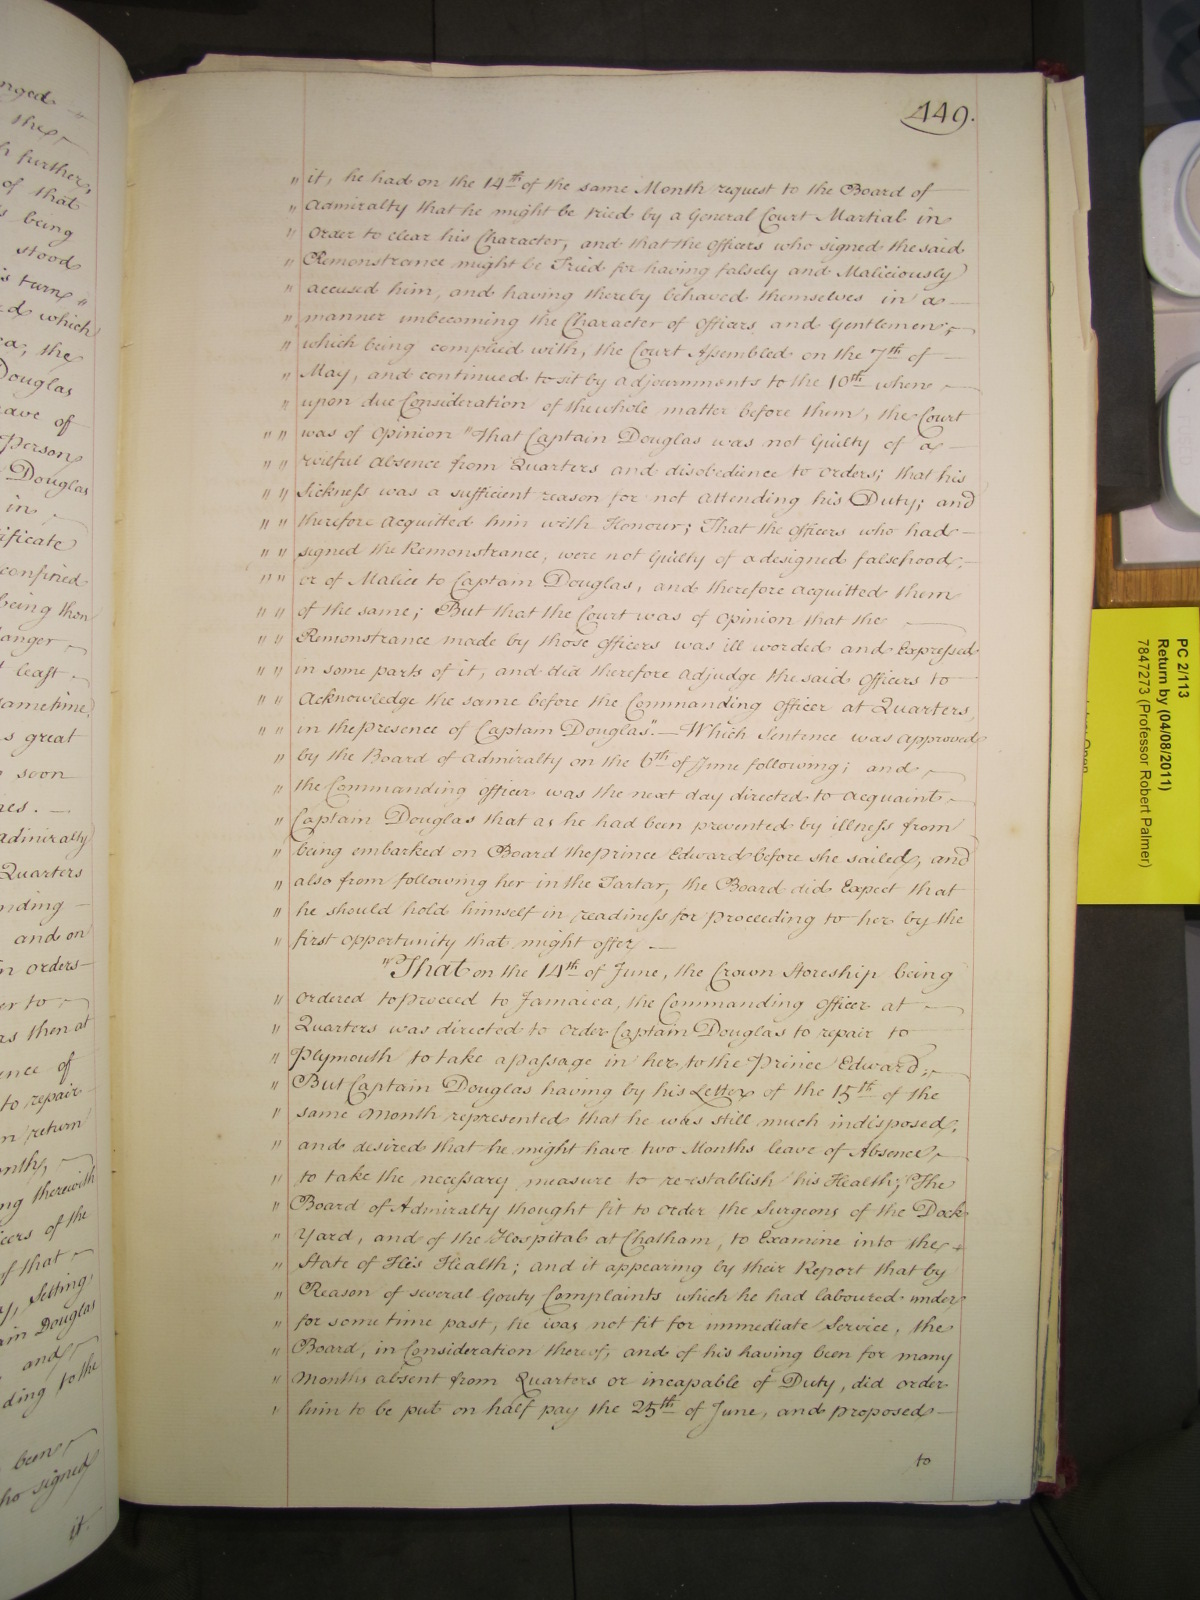 449.
" it, he had on the 14th of the same Month request to the Board of
" Admiralty that he might be tried by a General Court Martial in
" order to clear his Character, and that the Officers who signed the said
" Remonstrance might be Tried for having falsely and Maliciously
" accused him, and having thereby behaved themselves in a
" manner unbecoming the Character of Officers and Gentlemen;
" which being complied with, the Court Assembled on the 7th of
" May, and continued to sit by adjournments to the 10th when
" upon due Consideration of the whole matter before them, the Court
" " was of Opinion "That Captain Douglas was not Guilty of a
" " wilful Absence from Quarters and disobedience to orders; that his
" " Sickness was a sufficient reason for not attending his Duty; and
" " therefore acquitted him with Honour; That the Officers who had
" " signed the Remonstrance, were not Guilty of a designed falsehood,
" " or of Malice to Captain Douglas, and therefore acquitted them
" " of the same; But that the Court was of Opinion that the
" " Remonstrance made by those Officers was ill worded and Expressed
" " in some parts of it, and did therefore adjudge the said Officers to
" " Acknowledge the same before the Commanding Officer at Quarters,
" " in the presence of Captain Douglas". — Which Sentence was approved
" by the Board of Admiralty on the 6th of June following; and
" the Commanding Officer was the next day directed to acquaint
" Captain Douglas that as he had been prevented by illness from
" being embarked on Board the Prince Edward before she sailed, and
" also from following her in the Tartar, the Board did Expect that
" he should hold himself in readiness for proceeding to her by the
" first opportunity that might offer —
"That on the 14th of June, the Crown Storeship being
" ordered to proceed to Jamaica, the Commanding Officer at
" Quarters was directed to order Captain Douglas to repair to
" Plymouth to take a passage in her to the Prince Edward;
" But Captain Douglas having by his Letter of the 15th of the
" same Month represented that he was still much indisposed,
" and desired that he might have two Months leave of Absence
" to take the necessary measure to re-establish his Health; The
" Board of Admiralty thought fit to order the Surgeons of the Dock
" Yard, and of the Hospital at Chatham, to Examine into the
" State of His Health; and it appearing by their Report that by
" Reason of several Gouty Complaints which he had laboured under
" for some time past, he was not fit for immediate Service, the
" Board, in Consideration thereof, and of his having been for many
" Months absent from Quarters or incapable of Duty, did order
" him to be put on half pay the 25th of June, and proposed
to
PC 2/113
Return by (04/08/2011)
7847273 (Professor Robert Palmer)